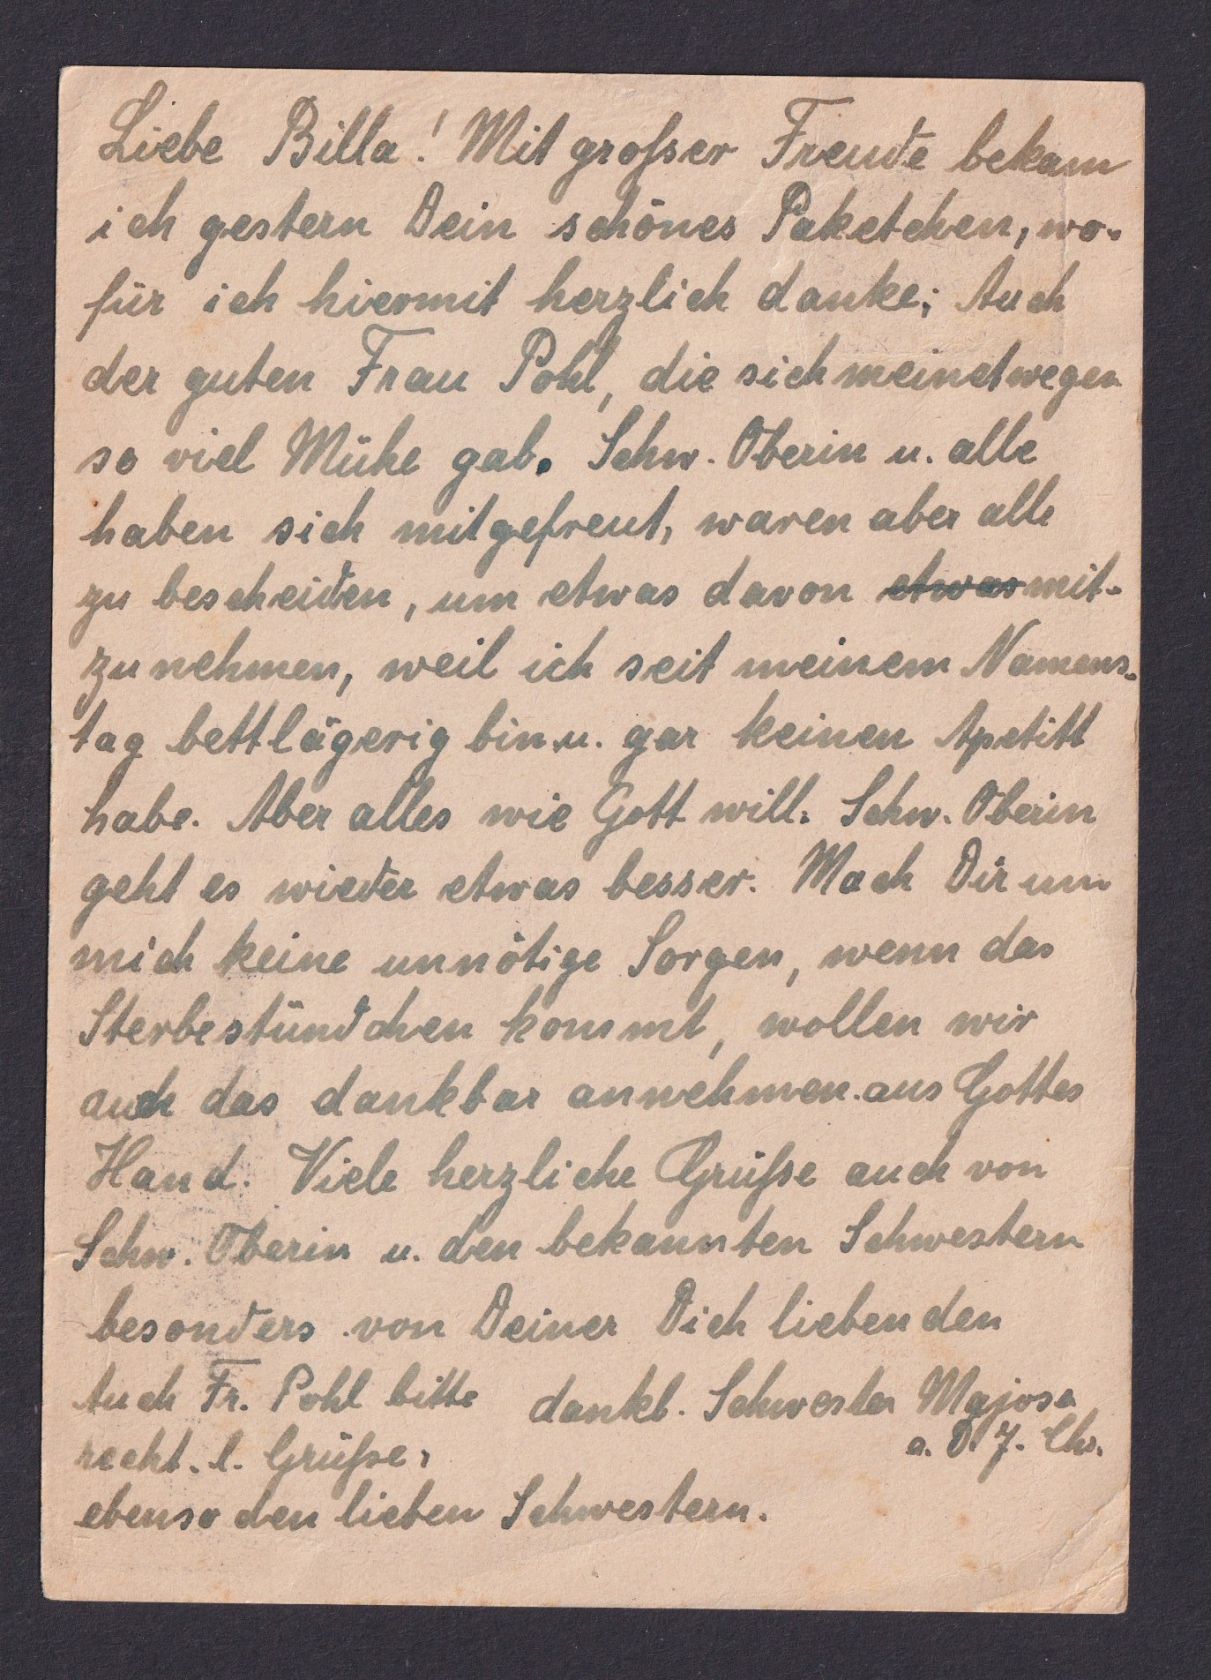 Liebe Billa! Mit grosser Freude bekam
ich gestern Dein schönes Paketchen, wo-
für ich hiermit herzlich danke; Auch
der guten Frau Pohl, die sich meinetwegen
so viel Mühe gab. Schw. Oberin u. alle
haben sich mitgefreut, waren aber alle
zu bescheiden, um etwas davon etwas mit-
zunehmen, weil ich seit meinem Namens-
tag bettlägerig bin u. gar keinen Apetitt
habe. Aber alles wie Gott will. Schw. Oberin
geht es wieder etwas besser. Mach Dir um
mich keine unnötige Sorgen, wenn das
Sterbestündchen kommt, wollen wir
auch das dankbar annehmen aus Gottes
Hand. Viele herzliche Grüsse auch von
Schw. Oberin u. den bekannten Schwestern
besonders von Deiner Dich liebenden
dankb. Schwester Majosa
a. D. J. Chr.
Auch Fr. Pohl bitte
recht. l. Grüsse,
ebenso den lieben Schwestern.